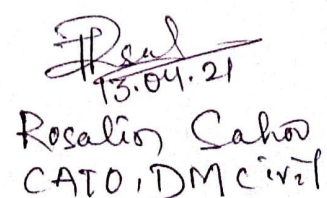 13.04.21
Rosalin Sahoo
CATO, DM Civil